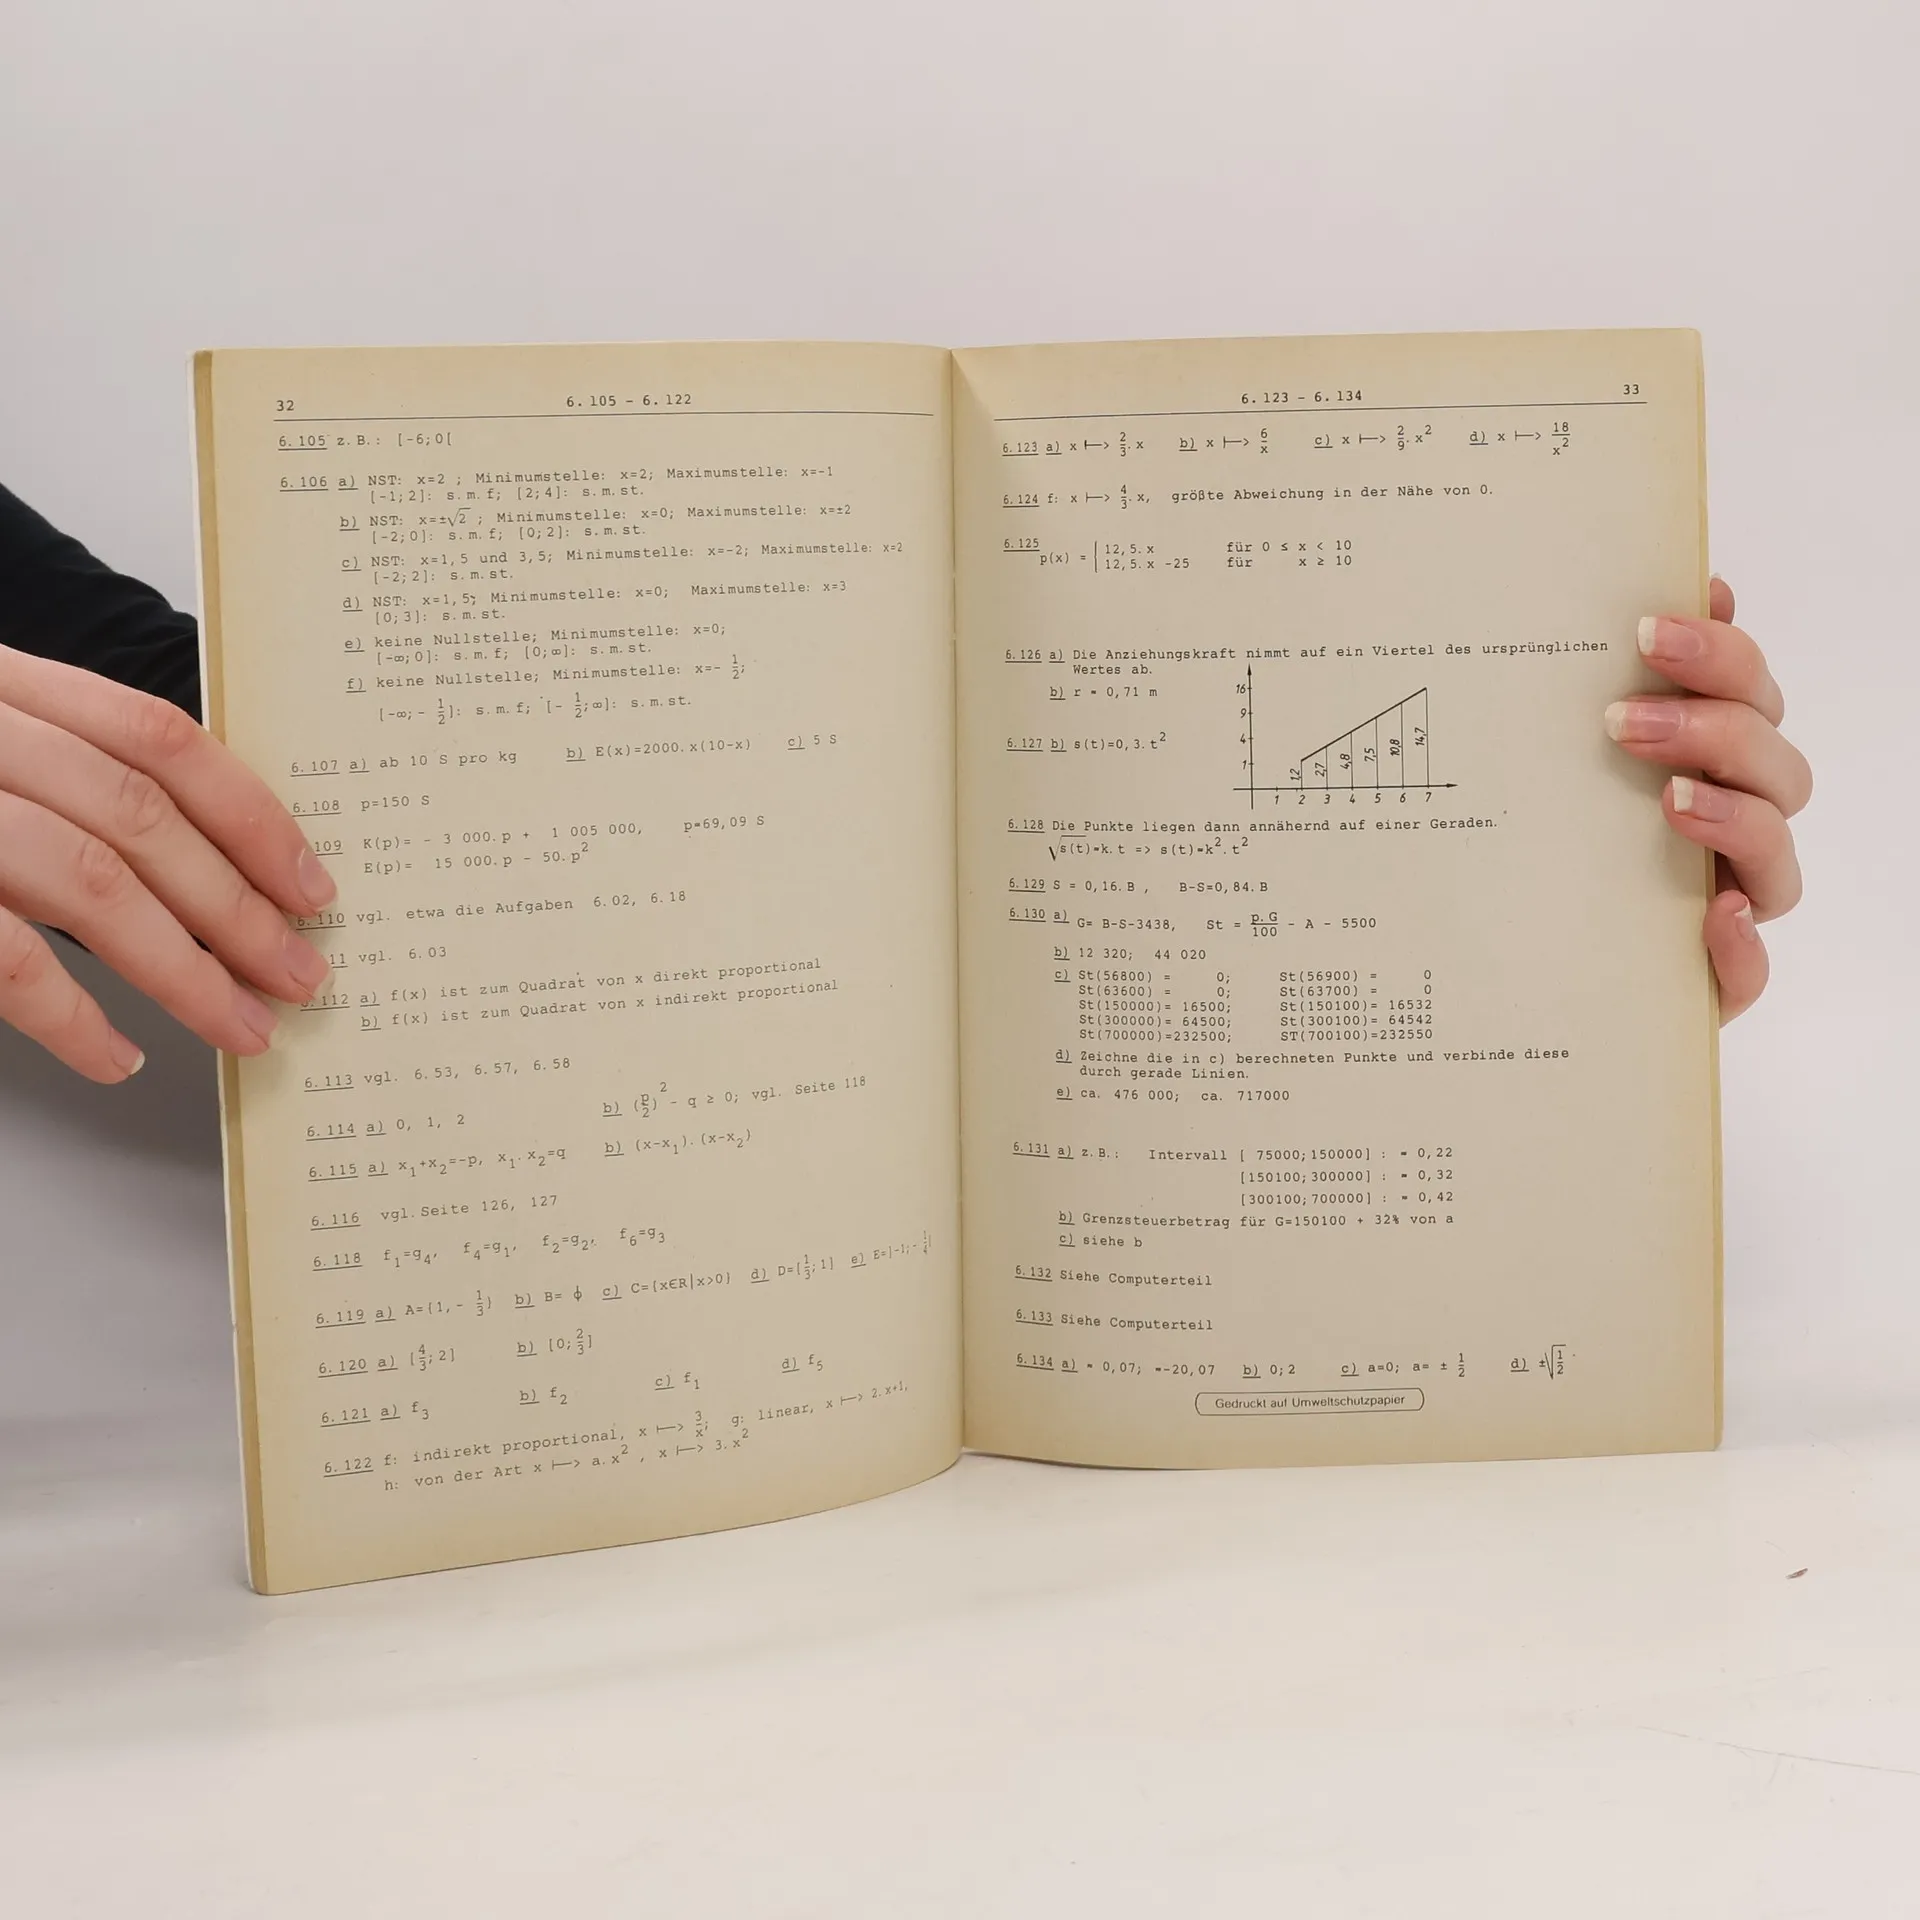 32 6.105 - 6.122
6.105 z.B.: [-6;0[
6.106 a) NST: x=2 ; Minimumstelle: x=2; Maximumstelle: x=-1
[-1;2]: s.m.f; [2;4]: s.m.st.
b) NST: x=±√2 ; Minimumstelle: x=0; Maximumstelle: x=±2
[-2;0]: s.m.f; [0;2]: s.m.st.
c) NST: x=1,5 und 3,5; Minimumstelle: x=-2; Maximumstelle: x=2
[-2;2]: s.m.st.
d) NST: x=1,5; Minimumstelle: x=0; Maximumstelle: x=3
[0;3]: s.m.st.
e) keine Nullstelle; Minimumstelle: x=0;
[-∞;0]: s.m.f; [0;∞]: s.m.st.
f) keine Nullstelle; Minimumstelle: x=- 1/2;
[-∞;- 1/2]: s.m.f; [- 1/2;∞]: s.m.st.
6.107 a) ab 10 S pro kg b) E(x)=2000.x(10-x) c) 5 S
6.108 p=150 S
109 K(p)= - 3 000.p + 1 005 000, p=69,09 S
E(p)= 15 000.p - 50.p²
6.110 vgl. etwa die Aufgaben 6.02, 6.18
11 vgl. 6.03
6.112 a) f(x) ist zum Quadrat von x direkt proportional
b) f(x) ist zum Quadrat von x indirekt proportional
6.113 vgl. 6.53, 6.57, 6.58
6.114 a) 0, 1, 2 b) (p/2)² - q ≥ 0; vgl. Seite 118
6.115 a) x₁+x₂=-p, x₁.x₂=q b) (x-x₁).(x-x₂)
6.116 vgl. Seite 126, 127
6.118 f₁=g₄, f₄=g₁, f₂=g₂, f₆=g₃
6.119 a) A={1,- 1/3} b) B= ϕ c) C={x∈R|x>0} d) D=[1/3;1] e) E=]-1;- 1/4[
6.120 a) [4/3;2] b) [0;2/3]
6.121 a) f₃ b) f₂ c) f₁ d) f₅
6.122 f: indirekt proportional, x ↦ 3/x; g: linear, x ↦ 2.x+1,
h: von der Art x ↦ a.x² , x ↦ 3.x²
6.123 - 6.134 33
6.123 a) x ↦ 2/3.x b) x ↦ 6/x c) x ↦ 2/9.x² d) x ↦ 18/x²
6.124 f: x ↦ 4/3.x, größte Abweichung in der Nähe von 0.
6.125
p(x) = 12,5.x für 0 ≤ x < 10
12,5.x -25 für x ≥ 10
6.126 a) Die Anziehungskraft nimmt auf ein Viertel des ursprünglichen
Wertes ab.
b) r ≈ 0,71 m
6.127 b) s(t)=0,3.t²
16
9
4
1
1,2 2,7 4,8 7,5 10,8 14,7
1 2 3 4 5 6 7
6.128 Die Punkte liegen dann annähernd auf einer Geraden.
√s(t)≈k.t => s(t)≈k².t²
6.129 S = 0,16.B , B-S=0,84.B
6.130 a) G= B-S-3438, St = p.G/100 - A - 5500
b) 12 320; 44 020
c) St(56800) = 0; St(56900) = 0
St(63600) = 0; St(63700) = 0
St(150000)= 16500; St(150100)= 16532
St(300000)= 64500; St(300100)= 64542
St(700000)=232500; ST(700100)=232550
d) Zeichne die in c) berechneten Punkte und verbinde diese
durch gerade Linien.
e) ca. 476 000; ca. 717000
6.131 a) z.B.: Intervall [ 75000;150000] : ≈ 0,22
[150100;300000] : ≈ 0,32
[300100;700000] : ≈ 0,42
b) Grenzsteuerbetrag für G=150100 + 32% von a
c) siehe b
6.132 Siehe Computerteil
6.133 Siehe Computerteil
6.134 a) ≈ 0,07; ≈-20,07 b) 0;2 c) a=0; a= ± 1/2 d) ±√1/2
Gedruckt auf Umweltschutzpapier